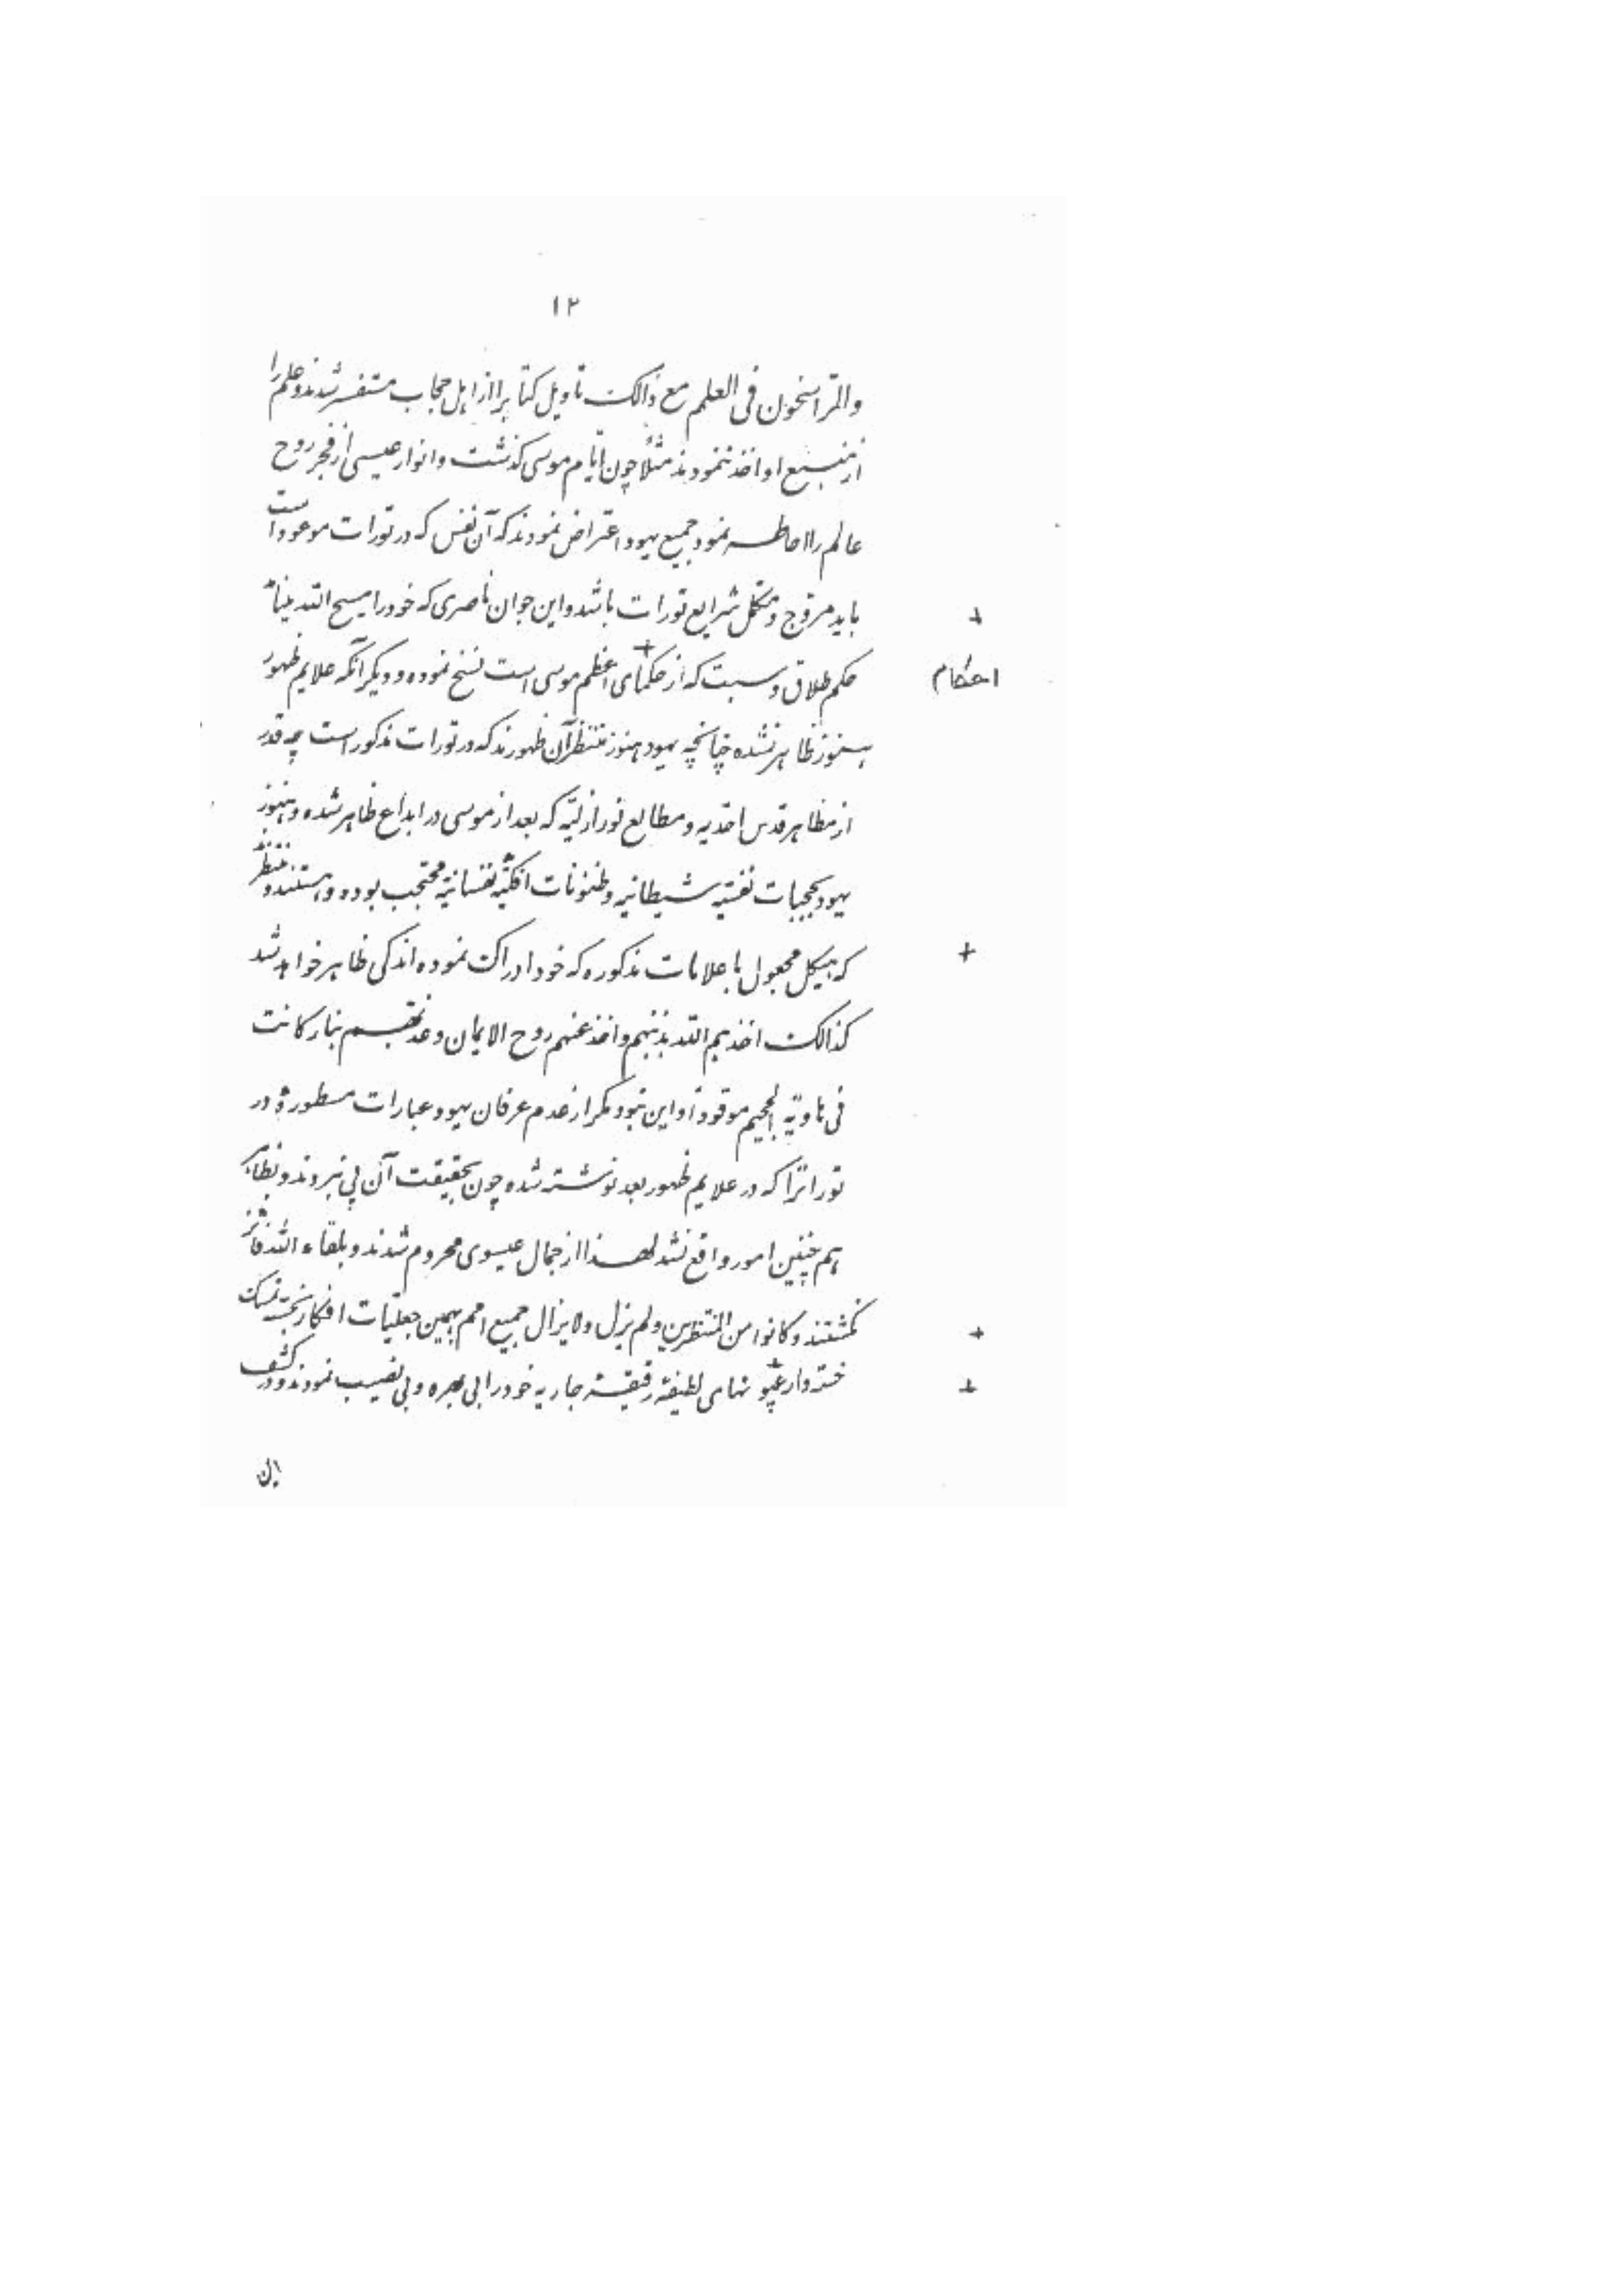 ١٢
والرّاسخون فی العلم مع ذالک تاویل کتابرا از اهل حجاب مستفسر شدند و علم را
از منبع او اخذ ننمودند مثلًا چون ایّام موسی گذشت و انوار عیسی از فجر روح
عالم را احاطه نمود جمیع یهود اعتراض نمودند که آن نفس که در تورات موعود است
باید مروّج و مکمّل شرایع تورات باشد و این جوان ناصری که خود را مسیح اللّه مینامد
+
حکم طلاق و سبت که از حکمهای اعظم موسی است نسخ نموده و دیگر آنکه علایم ظهور
احکام
هنوز ظاهر نشده چنانچه یهود هنوز منتظر آن ظهورند که در تورات مذکور است چه قدر
از مظاهر قدس احدیه و مطالع نور ازلیّه که بعد از موسی در ابداع ظاهر شده و هنوز
یهود بحجبات نفسیّه شیطانیه و ظنونات افکیّه نفسانیّه محتجب بوده و هستند و منتظرند
که هیکل مجعول با علامات مذکوره که خود ادراک نموده‌اند کی ظاهر خواهد شد
+
کذالک اخذهم اللّه بذنبهم و اخذ عنهم روح الایمان و عذّبهم بنار کانت
فی هاویّه الجحیم موقودًا و این نبود مگر از عدم عرفان یهود عبارات مسطوره در
توراترا که در علایم ظهور بعد نوشته شده چون بحقیقت آن پی نبردند و بظاهر
هم چنین امور واقع نشد لهذا از جمال عیسوی محروم شدند و بلقاء اللّه فائز
نگشتند و کانوا من المنتظرین و لم یزل و لایزال جمیع امم بهمین جعلیّات افکار تمسّک
+
جسته و از عیونهای لطیفه رقیقه جاریه خود را بی بهره و بی نصیب نمودند و در کشف
+
این